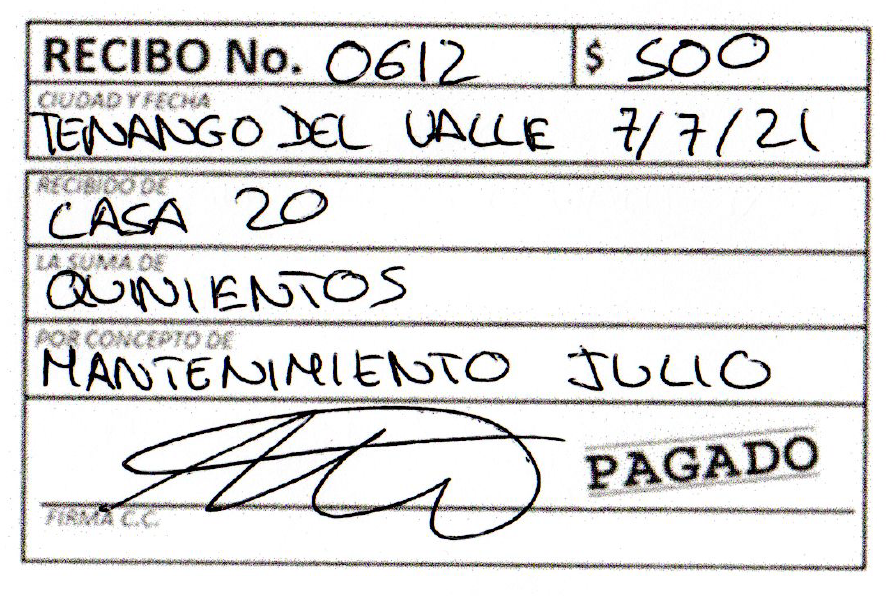 RECIBO No. 0612 $ 500
CIUDAD Y FECHA
TENANGO DEL VALLE 7/7/21
RECIBIDO DE
CASA 20
LA SUMA DE
QUINIENTOS
POR CONCEPTO DE
MANTENIMIENTO JULIO
PAGADO
FIRMA C.C.